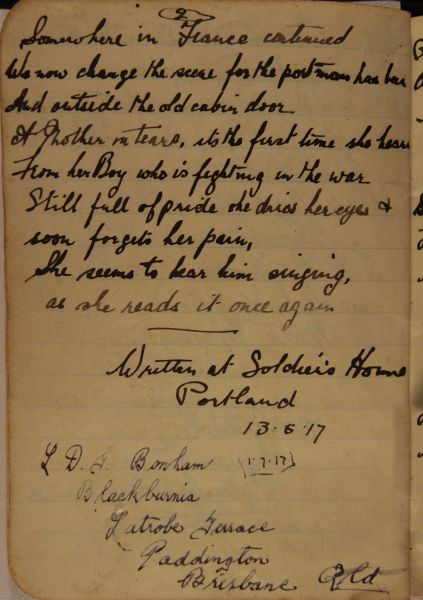 2
Somewhere in France continued
We now change the scene for the postman has been
And outside the old cabin door
A Mother in tears, its the first time she hears
From her Boy who is fighting in the war
Still full of pride she dries her eyes &
soon forgets her pain,
She seems to hear him singing,
as she reads it once again
Written at Soldiers Home
Portland
13.6.17
L D. F. Bonham (1.7.17)
Blackburnia
Latrobe Terrace
Paddington
Brisbane Qld